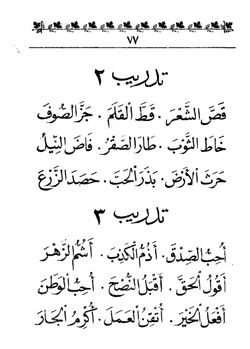 ٧٧
تدريب ٢
قَصَّ الشَّعْرَ . قَطَّ الْقَلَمَ . جَزَّ الصُّوفَ
خَاطَ الثَّوْبَ . طَارَ الصَّقْرُ . فَاضَ النِّيلُ
حَرَثَ الْأَرْضَ . بَذَرَ الْحَبَّ . حَصَدَ الزَّرْعَ
تدريب ٣
أُحِبُّ الصِّدْقَ . أَذُمُّ الْكَذِبَ . أَشُمُّ الزَّهْرَ
أَقُولُ الْحَقَّ . أَقْبَلُ النُّصْحَ . أُحِبُّ الْوَطَنَ
أَفْعَلُ الْخَيْرَ . أُتْقِنُ الْعَمَلَ . أُكْرِمُ الْجَارَ